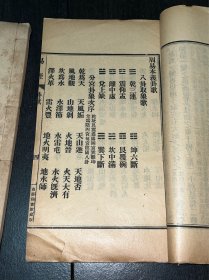 周易本義卦歌
八卦取象歌
☰乾三連 ☷坤六斷
☳震仰盂 ☶艮覆碗
☲離中虛 ☵坎中滿
☱兌上缺 ☴巽下斷
分宮卦象次序
乾為天 天風姤 天山遯 天地否
風地觀 山地剝 火地晉 火天大有
坎為水 水澤節 水雷屯 水火既濟
澤火革 雷火豐 地火明夷 地水師